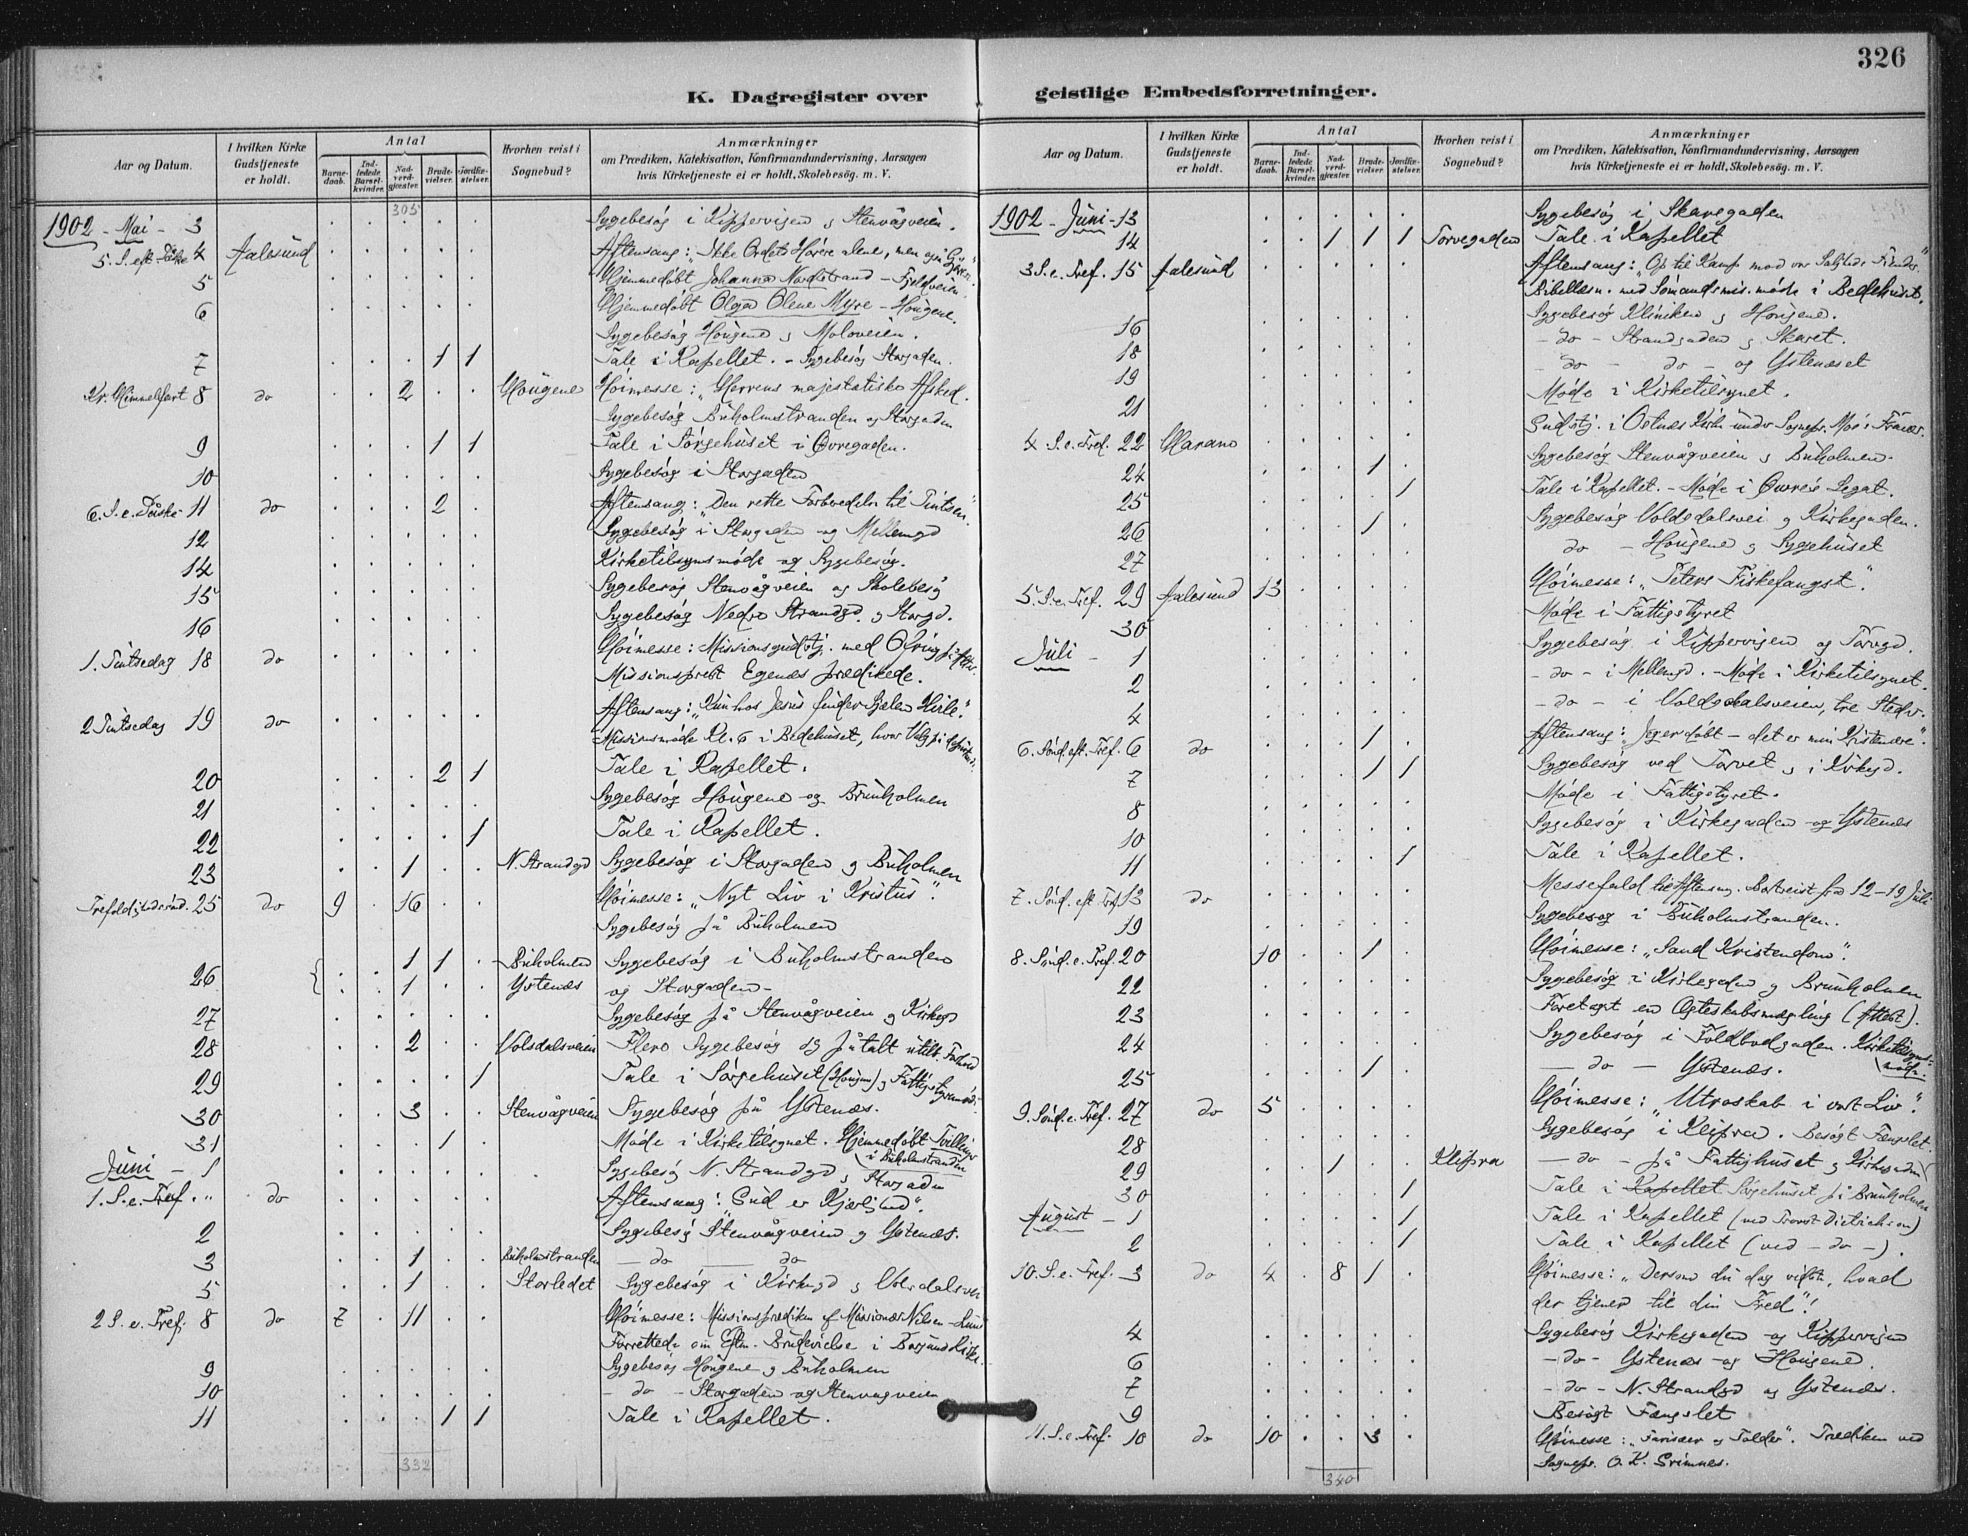 326
K. Dagregister over geistlige Embedsforretninger.
Aar og Datum. I hvilken Kirke Gudstjeneste er holdt. Antal Barnedaab. Indledede Barselkvinder. Nadverdgjæster. Brudevielser. Jordfæstelser. Hvorhen reist i Sognebud? Anmærkninger om Prædiken, Katekisation, Konfirmandundervisning, Aarsagen hvis Kirketjeneste ei er holdt, Skolebesög m. V.
305
1902 - Mai - 3 Sygebesøg i Kippervigen og Stenvågveien.
5. S. eft. Påske 4 Aalesund Aftensang: „Ikke Ordets Hørere alene, men også Gjørere".
5 Hjemmedøbt Johanna Nordstrand - Fjeldveien.
6 Hjemmedøbt Olga Oline Myre - Hougene.
Sygebesøg Hougene og Moloveien.
7 1 1 Tale i Kapellet. - Sygebesøg Storgaden.
Kr. Himmelfart 8 do 2 Hougene Høimesse: „Herrens majestætiske Afsked.
Sygebesøg Buholmstranden og Storgaden
9 1 1 Tale i Sørgehuset i Øvregaden.
10 Sygebesøg i Storgaden
6. S. e. Påske 11 do 2 Aftensang: „Den rette Forberedelse til Pintsen".
12 Sygebesøg i Storgaden og Mellemgd
14 Kirketilsynsmøde og Sygebesøg.
15 Sygebesøg Stenvågveien og Skolebesøg
16 Sygebesøg Nedre Strandgd. og Storgd.
1. Pintsedag 18 do Høimesse: Missionsgudstj. med Ofring på Altr.
Missionsprest Egenes prædikede.
2 Pintsedag 19 do Aftensang: „Kun hos Jesus finder Sjelen Hvile."
Missionsmøde Kl. 6 i Bedehuset, hvor Valg på
20 2 1 Tale i Kapellet.
21 Sygebesøg Hougene og Brunholmen
22 1 Tale i Kapellet.
23 1 N. Strandgd Sygebesøg i Storgaden og Buholmen
Trefoldighedssønd. 25 do 9 16 Høimesse: „Nyt Liv i Kristus".
Sygebesøg på Buholmen
26 1 1 Buholmen Sygebesøg i Buholmstranden
1 Ystenæs og Storgaden-
27 Sygebesøg på Stenvågveien og Kirkegd
28 2 Volsdalsveien Flere Sygebesøg og påtalt utilb. Forhold
29 1 Tale i Sørgehuset (Hougene) og Fattigstyremøde
30 3 Stenvågveien Sygebesøg på Ystenæs.
31 1 Møde i Kirketilsynet. Hjemmedøbt Tvillinger
i Buholmstranden
Juni - 1 Sygebesøg N. Strandgd og Storgaden
1. S. e. Tref. " do Aftensang: „Gud er Kjærlighed".
2 Sygebesøg Stenvågveien og Ystenæs.
3 1 Buholmstranden - do - do
5 1 Storledet Sygebesøg i Kirkegd og Volsdalsvei
2 S. e. Tref. 8 do 7 11 Høimesse: Missionsprædiken af Missionær Nilsen-Lund
Forrettede om Eftm. Brudevielse i Borgund Kirke.
9 Sygebesøg Hougene og Buholmen
10 - do - Storgaden og Stenvågveien
11 1 1 Tale i Kapellet.
332
Aar og Datum. I hvilken Kirke Gudstjeneste er holdt. Antal Barnedaab. Indledede Barselkvinder. Nadverdgjæster. Brudevielser. Jordfæstelser. Hvorhen reist i Sognebud? Anmærkninger om Prædiken, Katekisation, Konfirmandundervisning, Aarsagen hvis Kirketjeneste ei er holdt, Skolebesög m. V.
1902 - Juni - 13 Sygebesøg i Skaregaden
14 1 1 1 Torvegaden Tale i Kapellet
3 S. e. Tref. 15 Aalesund Aftensang: „Op til Kamp mod vor Saligheds Fiender."
Bibellæsn. med Sømandsmis. møde i Bedehuset.
16 Sygebesøg Kliniken og Hougene.
18 - do - Strandgaden og Skaret.
19 - do - do - og Ystenæset
21 Møde i Kirketilsynet.
4 S. e. Tref. 22 Harano Gudstj. i Østnæs Kirke under Sognepr. Moe's Fravær.
24 1 Sygebesøg Stenvågveien og Buholmen.
25 1 Tale i Kapellet. - Møde i Owrés Legat.
26 1 Sygebesøg Voldsdalsvei og Kirkegaden.
27 do - Hougene og Sygehuset
5. S. e. Tref. 29 Aalesund 13 Høimesse: „Peters Fiskefangst".
30 Møde i Fattigstyret
Juli - 1 Sygebesøg i Kippervigen og Torvgd.
2 - do - i Mellemgd. - Møde i Kirketilsynet.
4 - do - i Voldsdalsveien, tre Steder.
6. Sønd. eft. Tref. 6 do 1 Aftensang: Jeg er døbt - det er min Kristendom".
7 1 1 Sygebesøg ved Torvet og i Kirkegd.
8 Møde i Fattigstyret.
10 Sygebesøg i Kirkegaden og Ystenæs
11 1 Tale i Kapellet.
7. Sønd. eft. Tref. 13 do Messefald til Aftensang. Bortreist fra 12-19 Juli
19 Sygebesøg i Buholmstranden.
8. Sønd. e. Tref. 20 10 1 Høimesse: „Sand Kristendom".
22 Sygebesøg i Kirkegaden og Brunholmen
23 Foretaget en Ægteskabsmægling (Attest).
24 Sygebesøg i Toldbodgaden. Kirketilsynsmøde.
25 1 - do - Ystenæs.
9. Sønd. e. Tref. 27 do 5 Høimesse: „Utroskab i vort Liv".
28 Sygebesøg i Klipra. Besøgt Fængslet.
29 1 Klipra - do - på Fattighuset og Kirkegaden
30 1 Tale i Kapellet Sørgehuset på Brunholmen
August - 1 1 Tale i Kapellet (ved Provst Dietrichson)
2 1 Tale i Kapellet (ved - do -).
10. S. e. Tref. 3 do 4 8 1 Høimesse: „Dersom du dog vidste, hvad
der tjener til din Fred"!
4 Sygebesøg Kirkegaden og Kippervigen
6 - do - Ystenæs og Hougene.
7 - do - N. Strandgd og Ystenæs.
9 Besøgt Fængslet
11. S. e. Tref. 10 do 10 3 Høimesse: „Farisæer og Tolder". Prædiken ved
Sognepr. O. K. Grimnes.
340